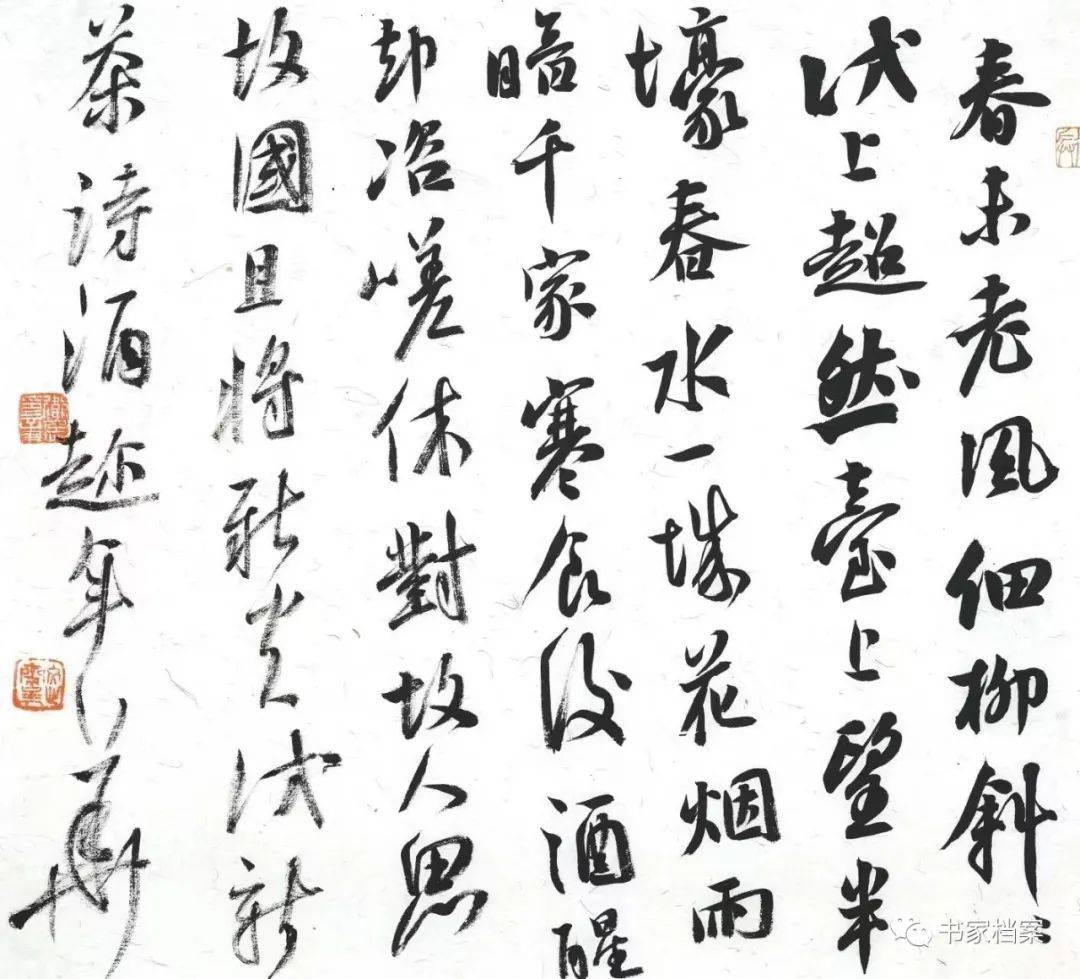 春未老風細柳斜〻
试上超然臺上望半
壕春水一城花烟雨
暗千家寒食後酒醒
却咨嗟休對故人思
故國且將新火试新
茶詩酒趁年華
书家档案